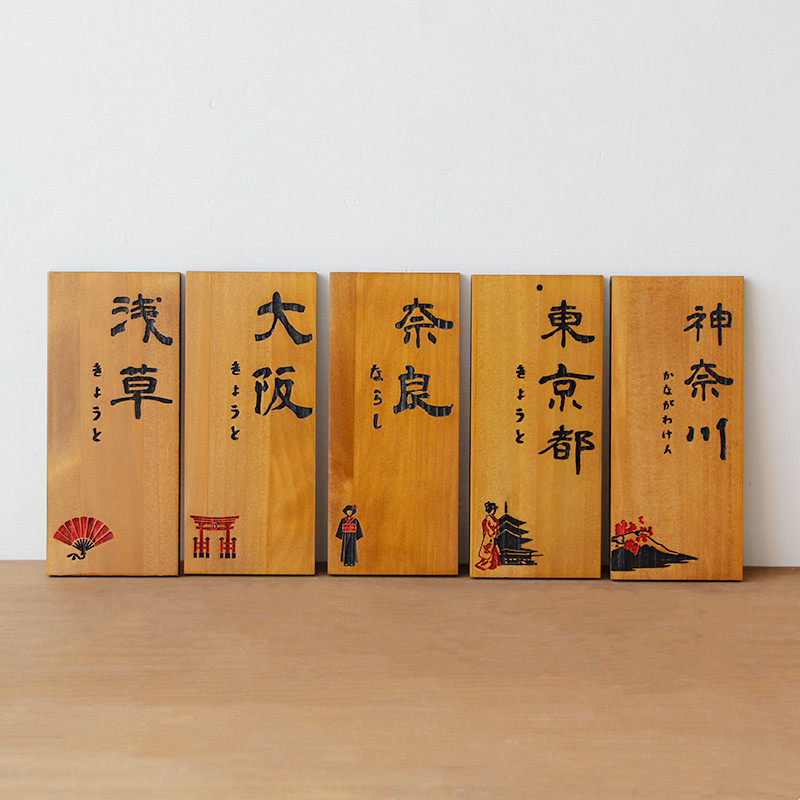 浅草
きょうと
大阪
きょうと
奈良
ならし
東京都
きょうと
神奈川
かながわけん